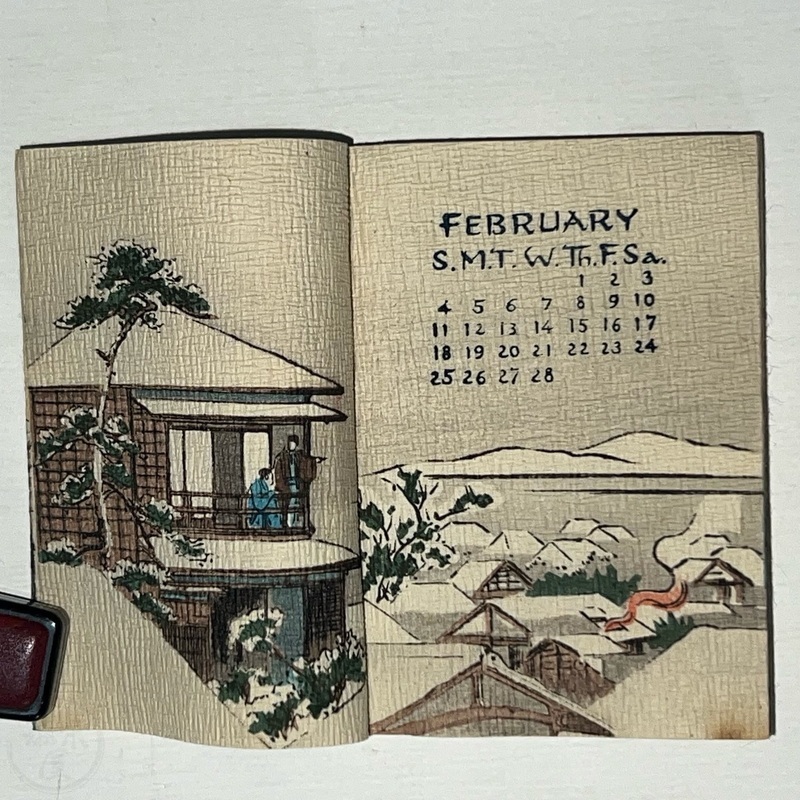 FEBRUARY
S. M. T. W. Th. F. Sa.
1 2 3
4 5 6 7 8 9 10
11 12 13 14 15 16 17
18 19 20 21 22 23 24
25 26 27 28